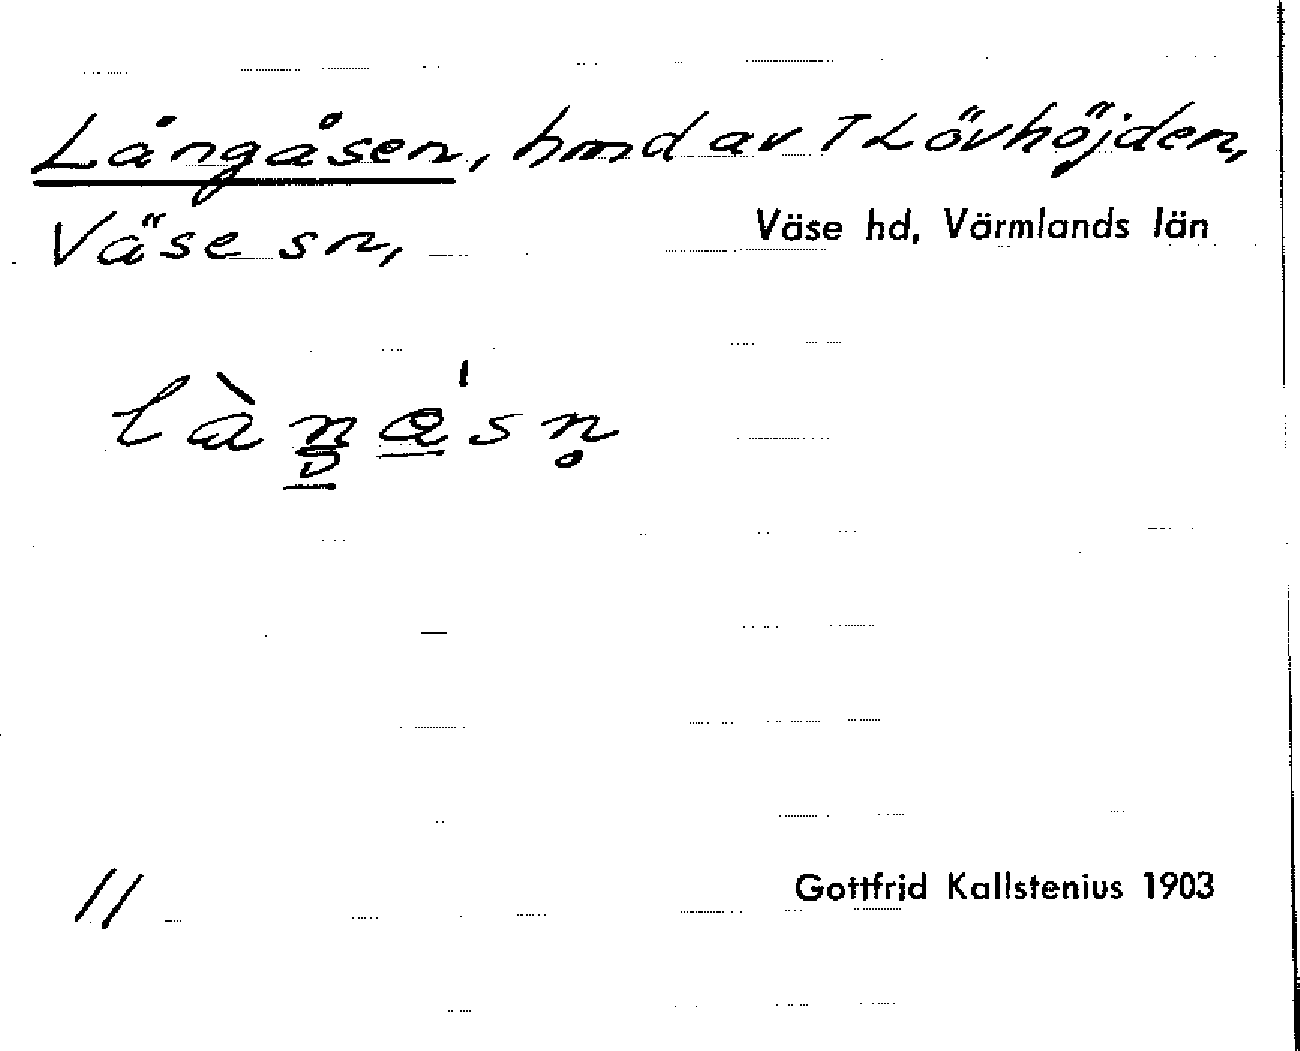 Långåsen, hmd av T Lövhöjden,
Väse sn, Väse hd, Värmlands län
11
Gottfrid Kallstenius 1903